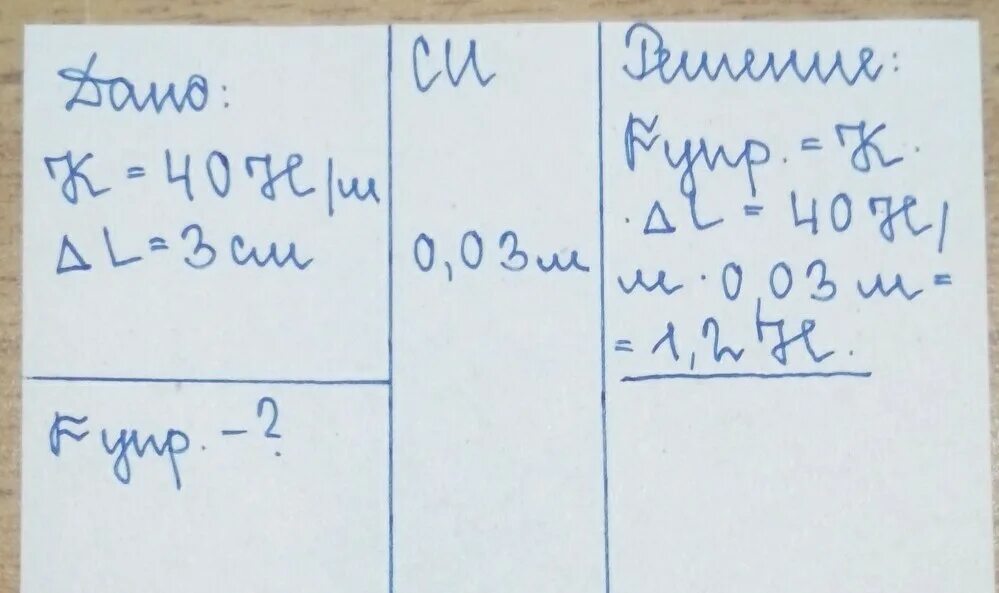 Дано:
К = 40 Н/м
Δ L = 3 см
Fупр. - ?
СИ
0,03 м
Решение:
Fупр. = К ·
· Δ L = 40 Н/
м · 0,03 м =
= 1,2 Н.